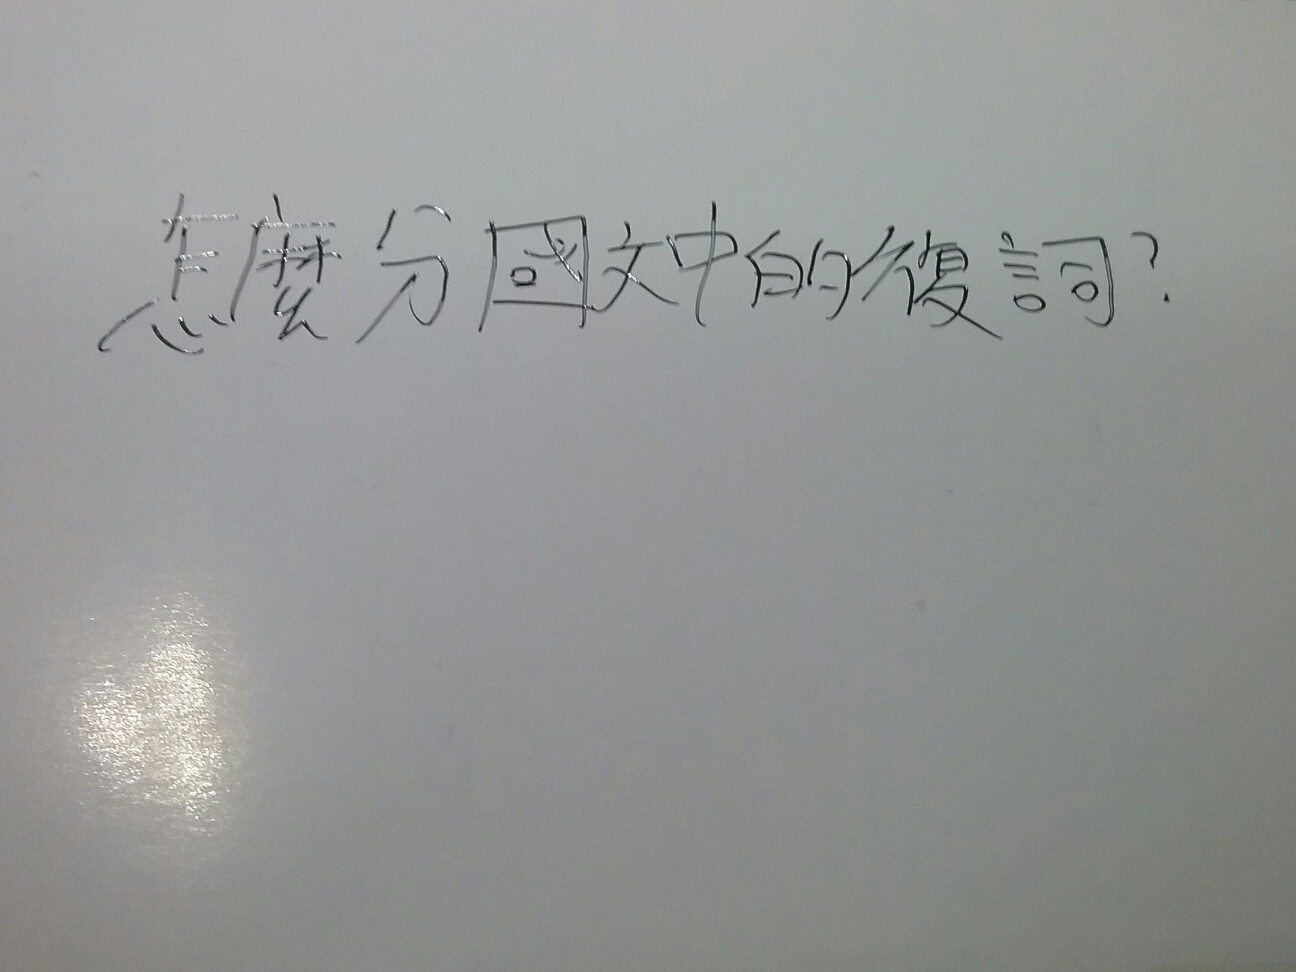 怎麼分國文中的復詞?